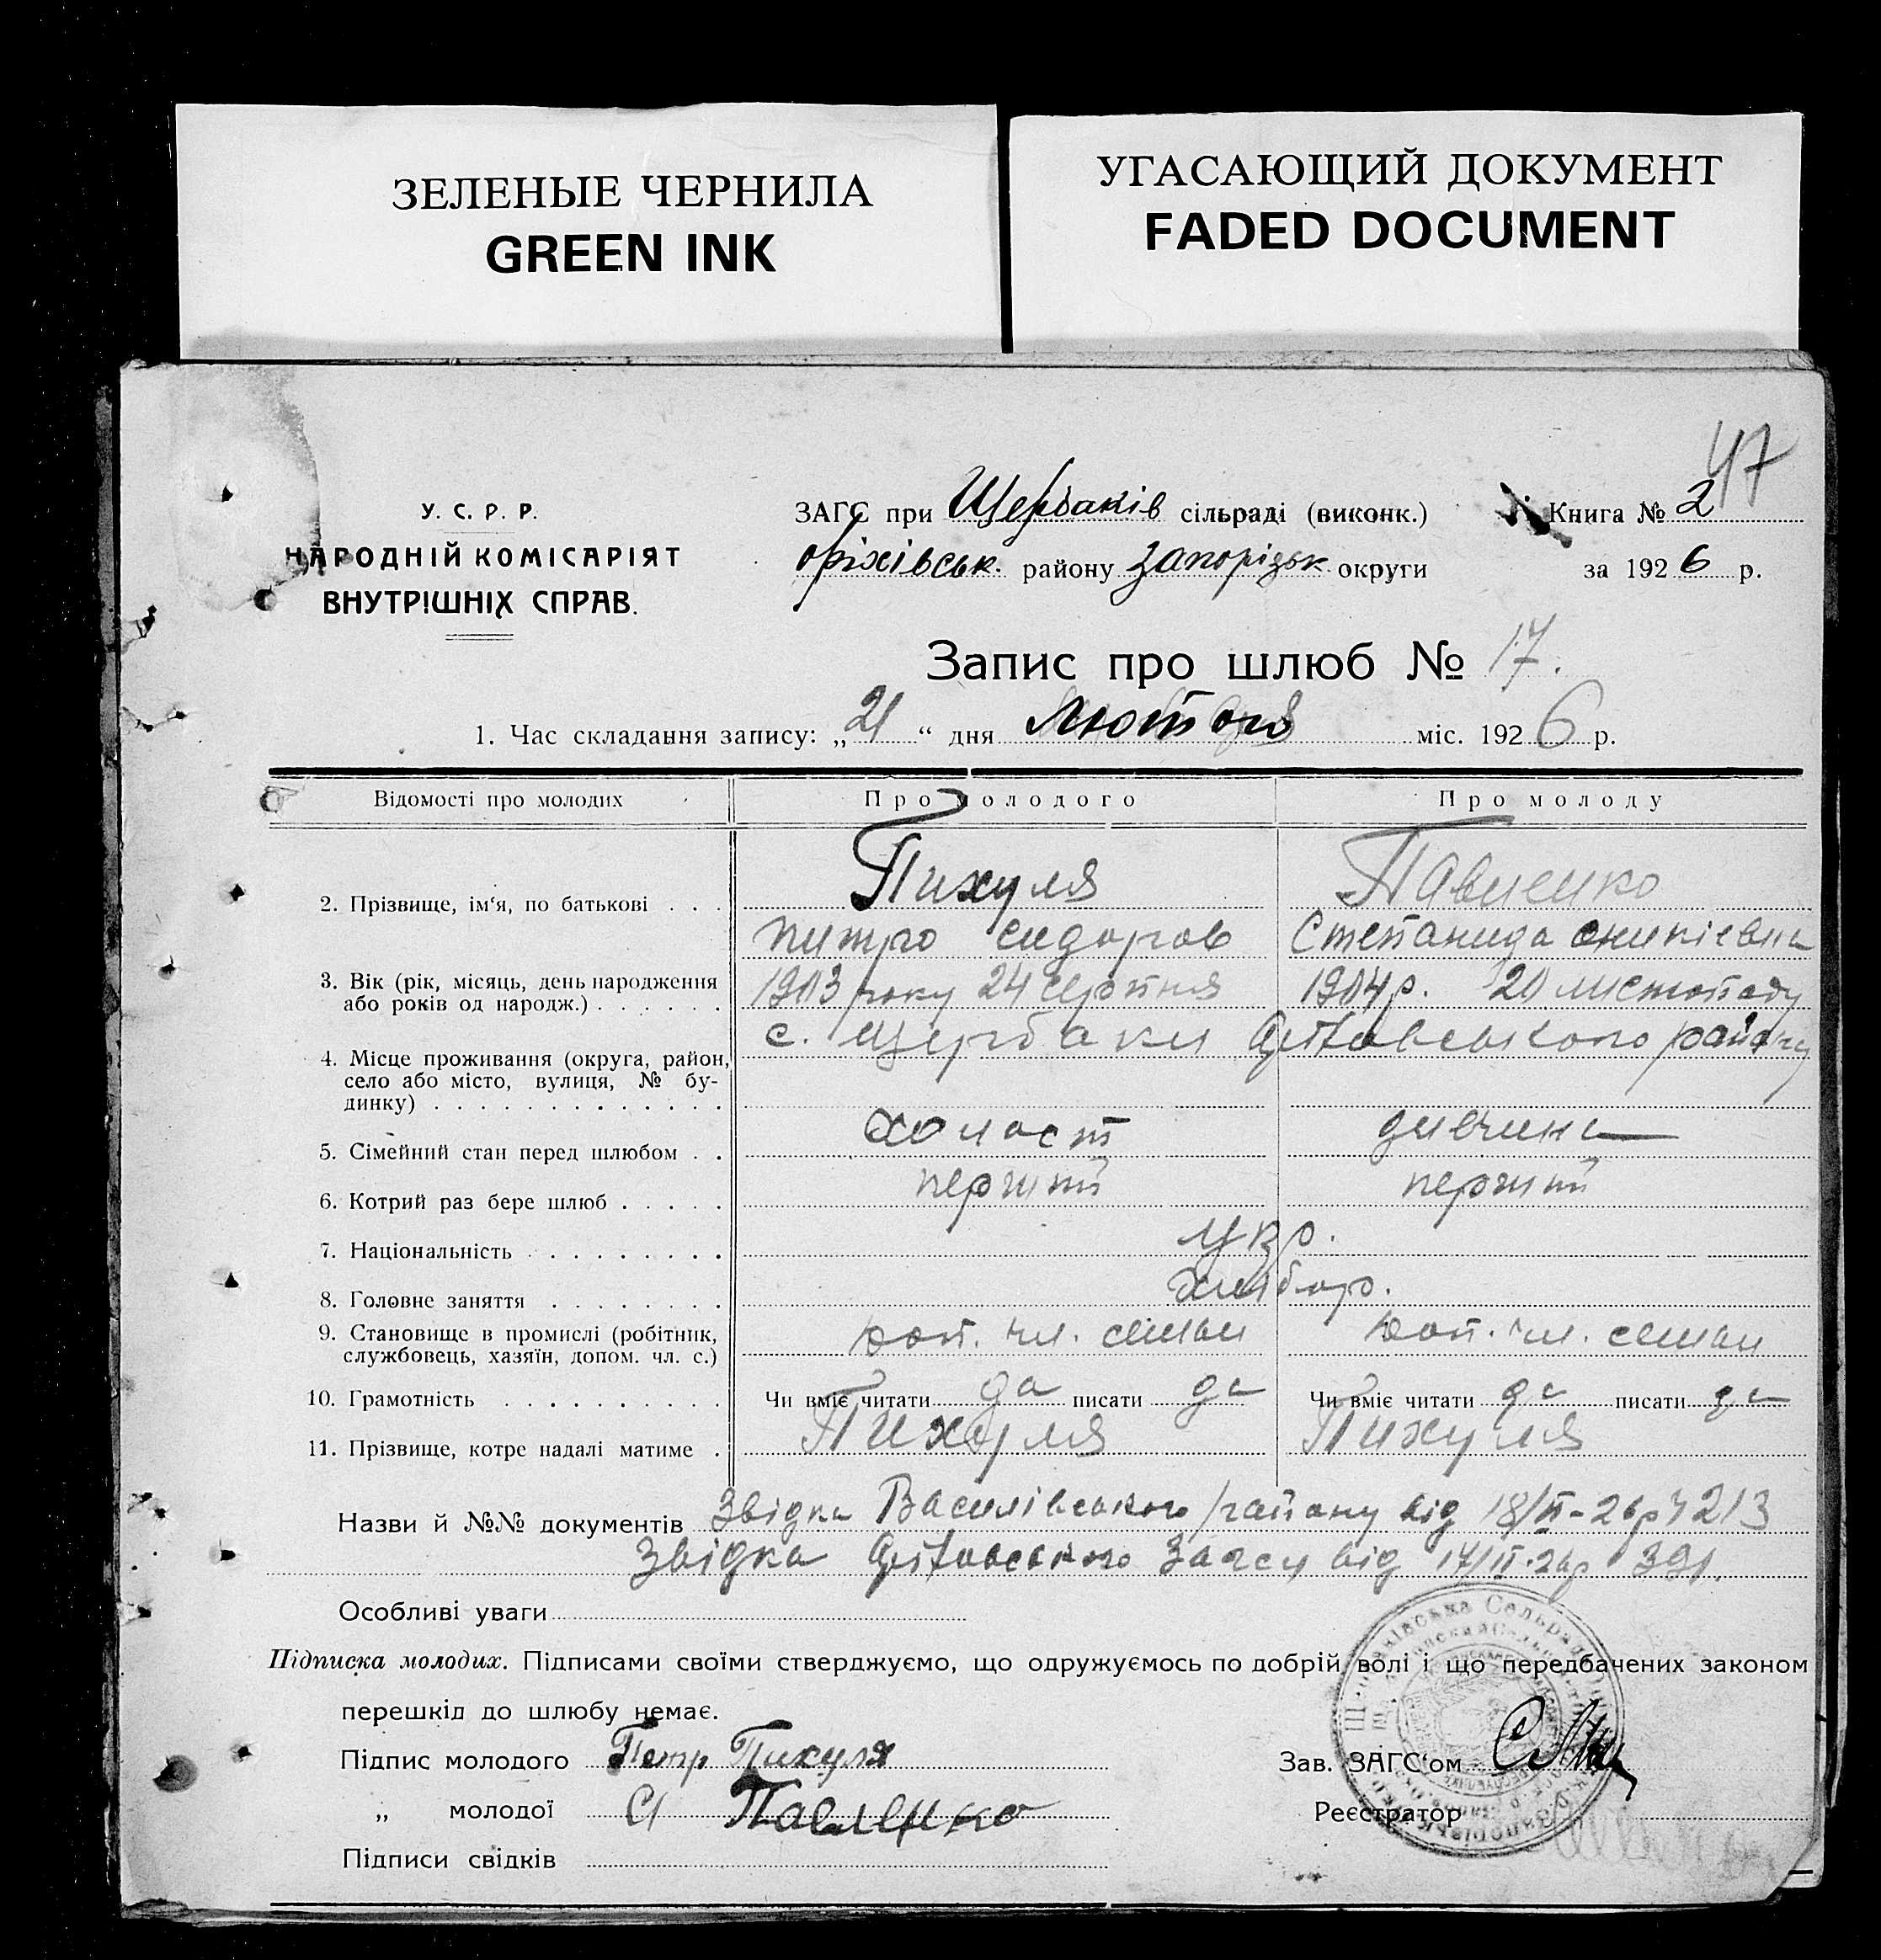 ЗЕЛЕНЫЕ ЧЕРНИЛА
GREEN INK
УГАСАЮЩИЙ ДОКУМЕНТ
FADED DOCUMENT
47
У. С. Р. Р.
НАРОДНІЙ КОМІСАРІЯТ
ВНУТРІШНІХ СПРАВ.
ЗАГС при Щербаків сільраді (виконк.)
Оріхівськ. району Запорізьк округи
Книга № 2
за 1926 р.
Запис про шлюб № 17.
1. Час складання запису: „21“ дня Лютого міс. 1926 р.
Відомості про молодих Про молодого Про молоду
Пихуля Павленко
2. Прізвище, ім'я, по батькові . . .
Питро Сидоров Степанида
3. Вік (рік, місяць, день народження 1903 року 24 серпня 1904р. 20 листопаду
або років од народж.) . . . . . .
с. Щербаки району
4. Місце проживання (округа, район,
село або місто, вулиця, № бу-
динку) . . . . . . . . . . . . .
5. Сімейний стан перед шлюбом . . холост дивчина
6. Котрий раз бере шлюб . . . . . першій першій
7. Національність . . . . . . . . . укр.
8. Головне заняття . . . . . . . . хлібор.
9. Становище в промислі (робітник, чл. семьи чл. семьи
службовець, хазяїн, допом. чл. с.)
10. Грамотність . . . . . . . . . . Чи вміє читати да писати да Чи вміє читати да писати да
11. Прізвище, котре надалі матиме . Пихуля Пихуля
Назви й №№ документів Звідка Василівського району від 18/II-26р 4213
Звідка Загсу від 17/II-26р 391.
Особливі уваги
Підписка молодих. Підписами своїми стверджуємо, що одружуємось по добрій волі і що передбачених законом
перешкід до шлюбу немає.
Підпис молодого Петр Пихуля
Зав. ЗАГС'ом
„ молодої С Павленко
Реєстратор
Підписи свідків